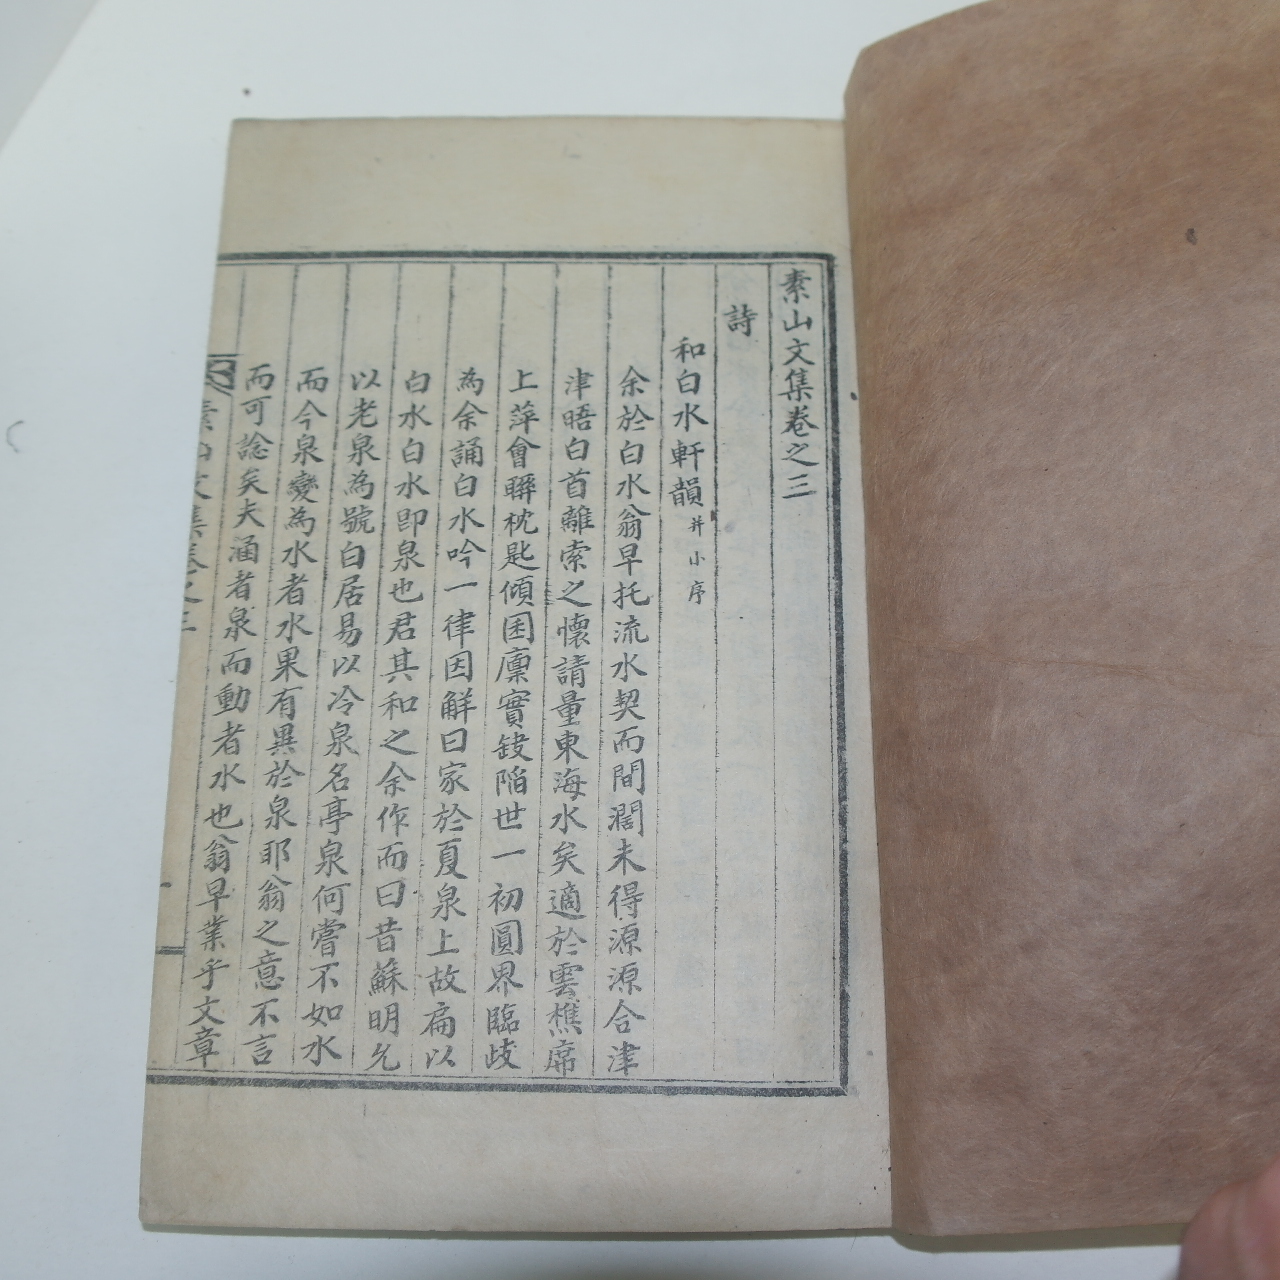 素山文集卷之三
詩
和白水軒韻并小序
余於白水翁早托流水契而間濶未得源源合津
津晤白首離索之懷請量東海水矣適於雲樵席
上萍會聯枕匙傾囷廩實鈌陷世一初圓界臨歧
為余誦白水吟一律因觧曰家於夏泉上故扁以
白水白水卽泉也君其和之余作而曰昔蘇明允
以老泉為號白居易以冷泉名亭泉何嘗不如水
而今泉變為水者水果有異於泉耶翁之意不言
而可諗矣夫涵者泉而動者水也翁早業乎文章
素山文集卷之三